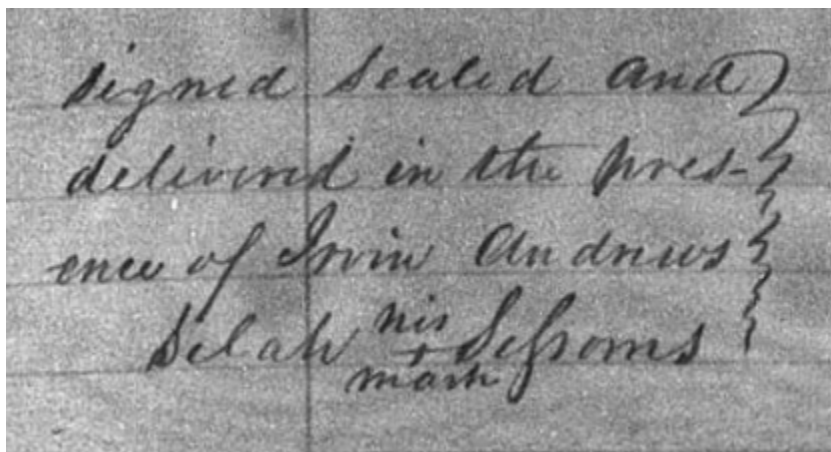 signed sealed and
delivered in the pres-
ence of Irvin Andrews
his
Selah + Sessoms
mark